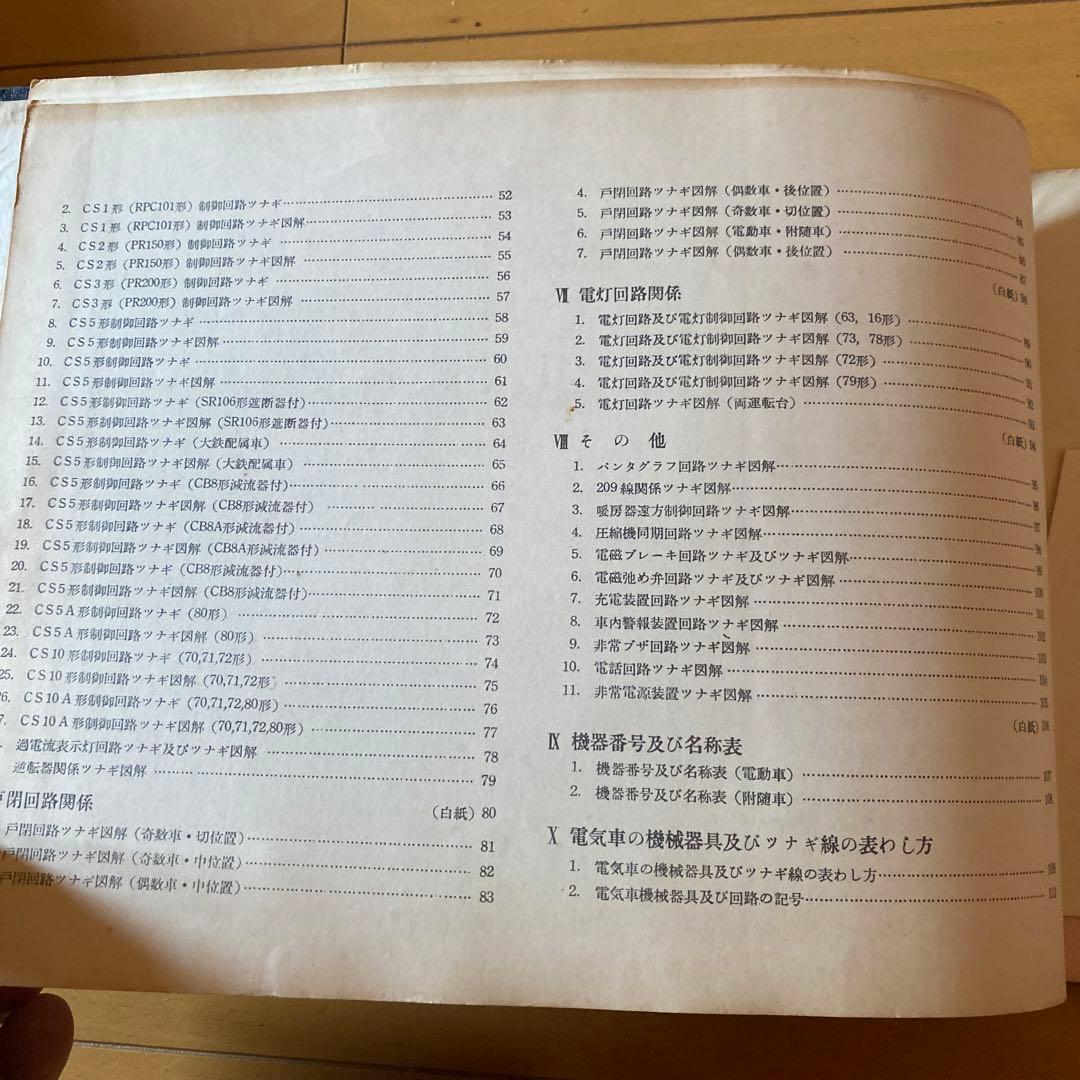 2. CS1形(RPC101形)制御回路ツナギ…………52
3. CS1形(RPC101形)制御回路ツナギ図解…………53
4. CS2形(PR150形)制御回路ツナギ…………54
5. CS2形(PR150形)制御回路ツナギ図解…………55
6. CS3形(PR200形)制御回路ツナギ…………56
7. CS3形(PR200形)制御回路ツナギ図解…………57
8. CS5形制御回路ツナギ…………58
9. CS5形制御回路ツナギ図解…………59
10. CS5形制御回路ツナギ…………60
11. CS5形制御回路ツナギ図解…………61
12. CS5形制御回路ツナギ(SR106形遮断器付)…………62
13. CS5形制御回路ツナギ図解(SR106形遮断器付)…………63
14. CS5形制御回路ツナギ(大鉄配属車)…………64
15. CS5形制御回路ツナギ図解(大鉄配属車)…………65
16. CS5形制御回路ツナギ(CB8形減流器付)…………66
17. CS5形制御回路ツナギ図解(CB8形減流器付)…………67
18. CS5形制御回路ツナギ(CB8A形減流器付)…………68
19. CS5形制御回路ツナギ図解(CB8A形減流器付)…………69
20. CS5形制御回路ツナギ(CB8形減流器付)…………70
21. CS5形制御回路ツナギ図解(CB8形減流器付)…………71
22. CS5A形制御回路ツナギ(80形)…………72
23. CS5A形制御回路ツナギ図解(80形)…………73
24. CS10形制御回路ツナギ(70,71,72形)…………74
25. CS10形制御回路ツナギ図解(70,71,72形)…………75
26. CS10A形制御回路ツナギ(70,71,72,80形)…………76
7. CS10A形制御回路ツナギ図解(70,71,72,80形)…………77
過電流表示灯回路ツナギ及びツナギ図解…………78
逆転器関係ツナギ図解…………79
戸閉回路関係 (白紙) 80
戸閉回路ツナギ図解(奇数車・切位置)…………81
戸閉回路ツナギ図解(奇数車・中位置)…………82
戸閉回路ツナギ図解(偶数車・中位置)…………83
4. 戸閉回路ツナギ図解(偶数車・後位置)…………84
5. 戸閉回路ツナギ図解(奇数車・切位置)…………85
6. 戸閉回路ツナギ図解(電動車・附随車)…………86
7. 戸閉回路ツナギ図解(偶数車・後位置)…………87
Ⅶ 電灯回路関係 (白紙)
1. 電灯回路及び電灯制御回路ツナギ図解(63, 16形)…………89
2. 電灯回路及び電灯制御回路ツナギ図解(73, 78形)…………90
3. 電灯回路及び電灯制御回路ツナギ図解(72形)…………91
4. 電灯回路及び電灯制御回路ツナギ図解(79形)…………92
5. 電灯回路ツナギ図解(両運転台)…………93
Ⅷ その他 (白紙) 94
1. パンタグラフ回路ツナギ図解…………95
2. 209線関係ツナギ図解…………96
3. 暖房器遠方制御回路ツナギ図解…………97
4. 圧縮機同期回路ツナギ図解…………98
5. 電磁ブレーキ回路ツナギ及びツナギ図解…………99
6. 電磁弛め弁回路ツナギ及びツナギ図解…………100
7. 充電装置回路ツナギ図解…………101
8. 車内警報装置回路ツナギ図解…………102
9. 非常ブザ回路ツナギ図解…………103
10. 電話回路ツナギ図解…………104
11. 非常電源装置ツナギ図解…………105
(白紙) 106
Ⅸ 機器番号及び名称表
1. 機器番号及び名称表(電動車)…………107
2. 機器番号及び名称表(附随車)…………108
Ⅹ 電気車の機械器具及びツナギ線の表わし方
1. 電気車の機械器具及びツナギ線の表わし方…………109
2. 電気車機械器具及び回路の記号…………111